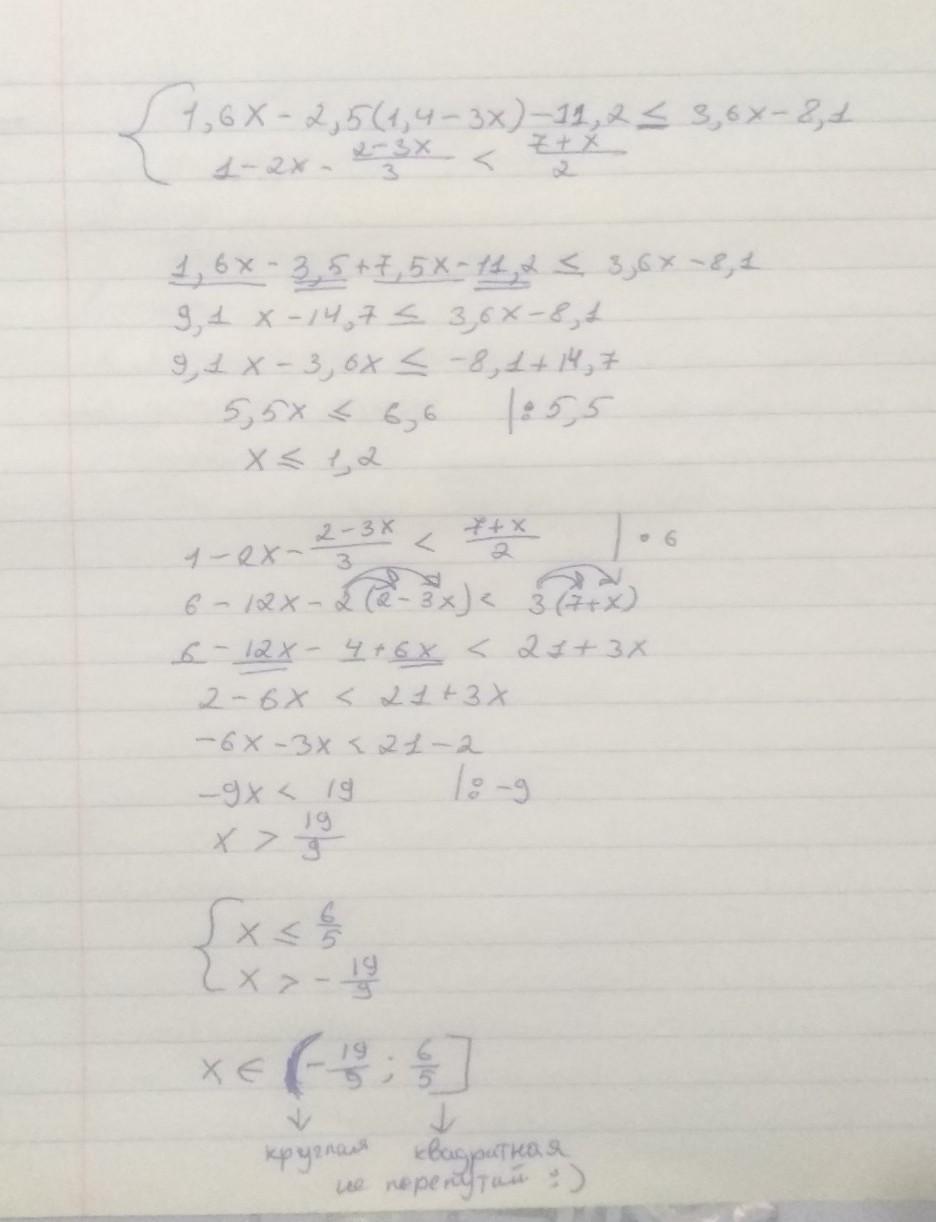 1,6x - 2,5(1,4 - 3x) - 11,2 ≤ 3,6x - 8,1
1 - 2x - (2-3x)/3 < (7+x)/2
1,6x - 3,5 + 7,5x - 11,2 ≤ 3,6x - 8,1
9,1 x - 14,7 ≤ 3,6x - 8,1
9,1 x - 3,6x ≤ -8,1 + 14,7
5,5x ≤ 6,6 |: 5,5
x ≤ 1,2
1 - 2x - (2-3x)/3 < (7+x)/2 | · 6
6 - 12x - 2(2 - 3x) < 3(7+x)
6 - 12x - 4 + 6x < 21 + 3x
2 - 6x < 21 + 3x
-6x - 3x < 21 - 2
-9x < 19 |: -9
x > 19/9
x ≤ 6/5
x > - 19/9
x ∈ (- 19/9 ; 6/5]
↓ ↓
круглая квадратная
не перепутай :)